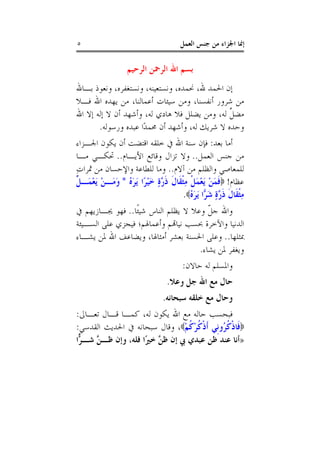 إنما الجزاء من جنس العمل
٥
بسم الله الرحمن الرحيم
إن الحمد لله، نحمده، ونستعينه، ونستغفره، ونعوذ بـــالله
من شرور أنفسنا، ومن سيئات أعمالنا، من يهده الله فـــلا
مضل له، ومن يضلل فلا هادي له، وأشهد أن لا إله إلا الله
وحده لا شريك له، وأشهد أن محمدًا عبده ورسوله.
أما بعد: فإن سنة الله في خلقه اقتضت أن يكون الجـــزاء
من جنس العمل.. ولا تزال وقائع الأيـــام.. تحكـــي مـــا
للمعاصي والظلم من آلام.. وما للطاعة والإحسان من ثمرات
عظام! ﴿فَمَنْ يَعْمَلْ مِثْقَالَ ذَرَّةٍ خَيْرًا يَرَهُ * وَمَـــنْ يَعْمَـــلْ
مِثْقَالَ ذَرَّةٍ شَرًّا يَرَهُ﴾.
والله جلّ وعلا لا يظلم الناس شيئًا.. فهو يجـــازيهم في
الدنيا والآخرة بحسب نياتهم وأعمالهم؛ فيجزي على الســـيئة
بمثلها.. وعلى الحسنة بعشر أمثالها، ويضاعف الله لمن يشـــاء
ويغفر لمن يشاء.
والمسلم له حالان:
حال مع الله جل وعلا.
وحال مع خلقه سبحانه.
فبحسب حاله مع الله يكون له، كمـــا قـــال تعـــالى:
﴿فَاذْكُرُونِي أَذْكُرْكُمْ﴾، وقال سبحانه في الحديث القدسي:
«أنا عند ظن عبدي بي إن ظنّ خيرًا فله، وإن ظـــنّ شـــرًّا